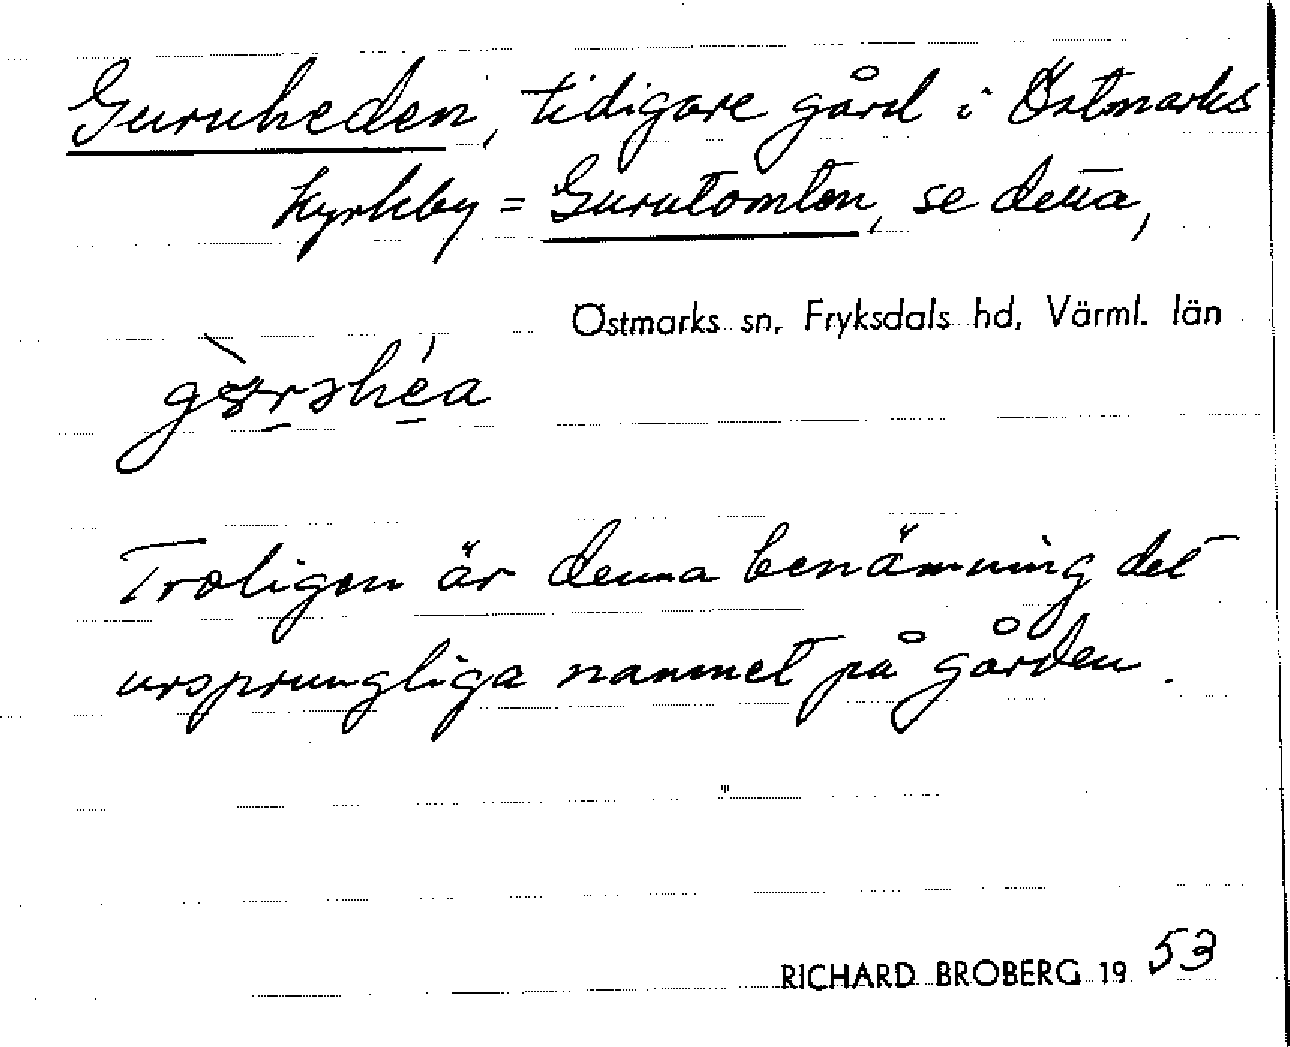 Guruheden, tidigare gård i Östmarks
kyrkby = Gurutomten, se detta,
Östmarks sn, Fryksdals hd, Värml. län
Troligen är denna benämning det
ursprungliga namnet på gården.
RICHARD BROBERG 1953